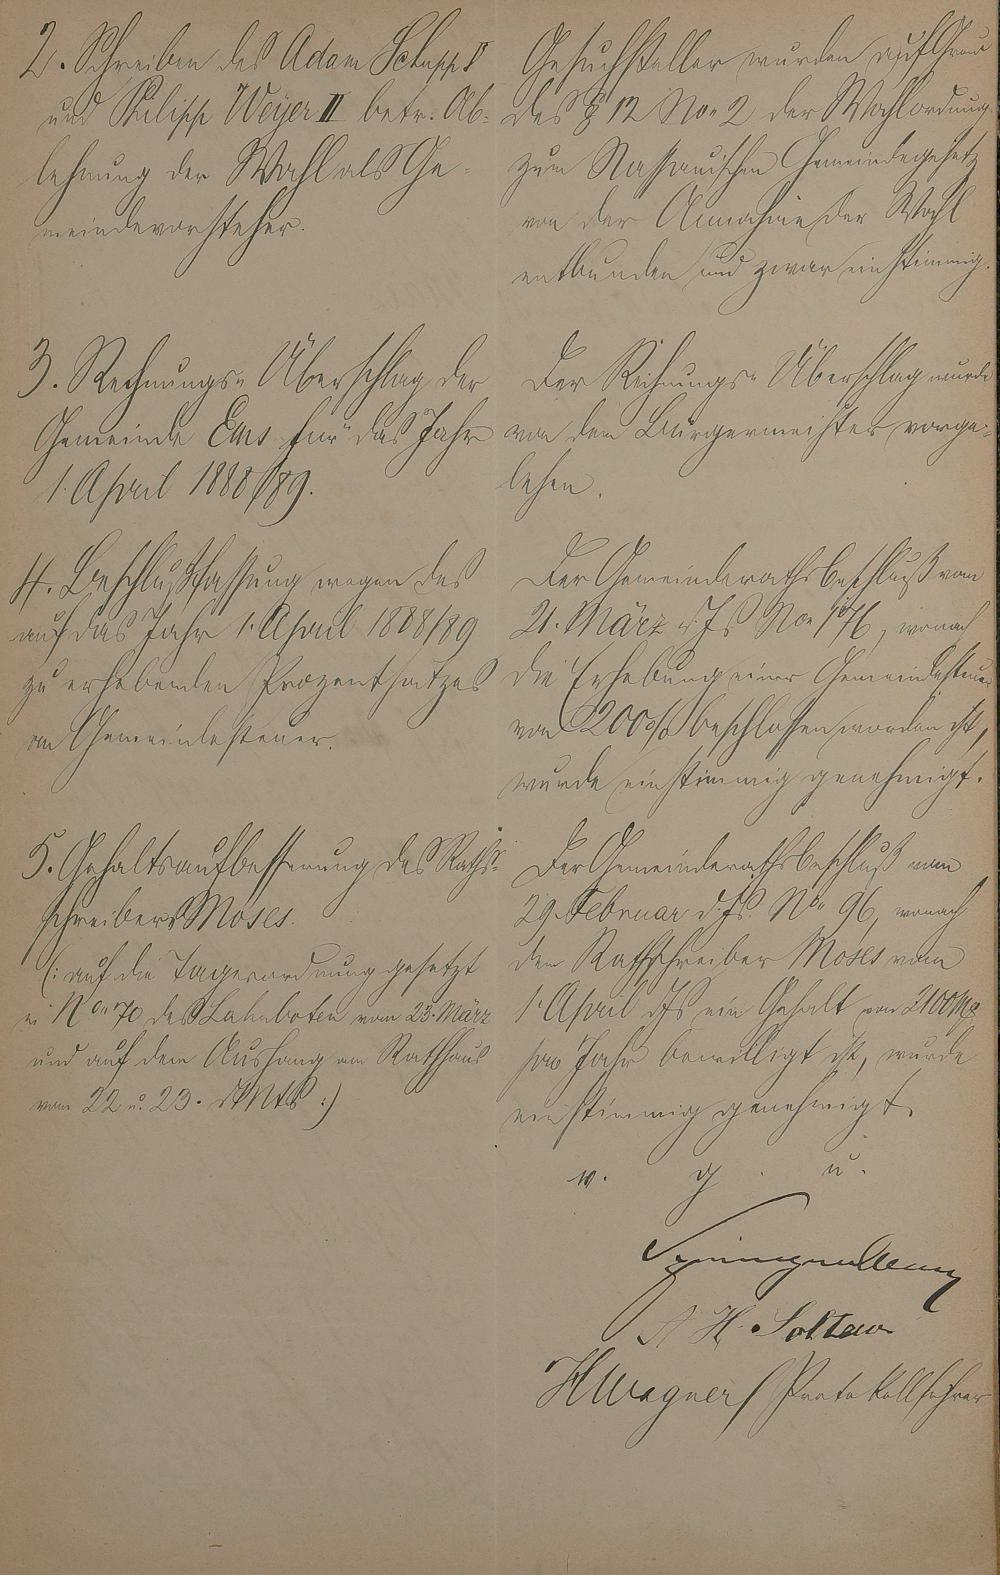 2. Schreiben des Adam Schupp II
und Philipp Weyer III betr. Ab-
lehnung der Wahl als Ge-
meindevorsteher.
Gesuchsteller wurden auf Grund
des § 12 No 2 der Wahlordnung
zum Nassauischen Gemeindegesetz
von der Annahme der Wahl
entbunden und zwar einstimmig.
3. Rechnungs-Überschlag der
Gemeinde Ems für das Jahr
1. April 1888/89.
Der Rechnungs-Überschlag wurde
von dem Bürgermeister vorge-
lesen.
4. Beschlußfassung wegen des
auf das Jahr 1. April 1888/89
zu erhebenden Prozentsatzes
an Gemeindesteuer.
Der Gemeinderathsbeschluß vom
21. März d. Js No 176, wonach
die Erhebung einer Gemeindesteuer
von 200% beschlossen worden ist,
wurde einstimmig genehmigt.
5. Gehaltsaufbesserung des Raths-
schreibers Moses.
(: auf die Tagesordnung gesetzt
in No 70 des Lahnboten vom 23. März
und auf dem Aushang am Rathhaus
vom 22 u. 23. d Mts :)
Der Gemeinderathsbeschluß vom
29. Februar d. Js. No 96, wonach
dem Rathsschreiber Moses vom
1. April d Js ein Gehalt von 2100 Mk
pro Jahr bewilligt ist, wurde
einstimmig genehmigt.
v. g. u.
A H. Soltau
H Wagner / Protokollführer